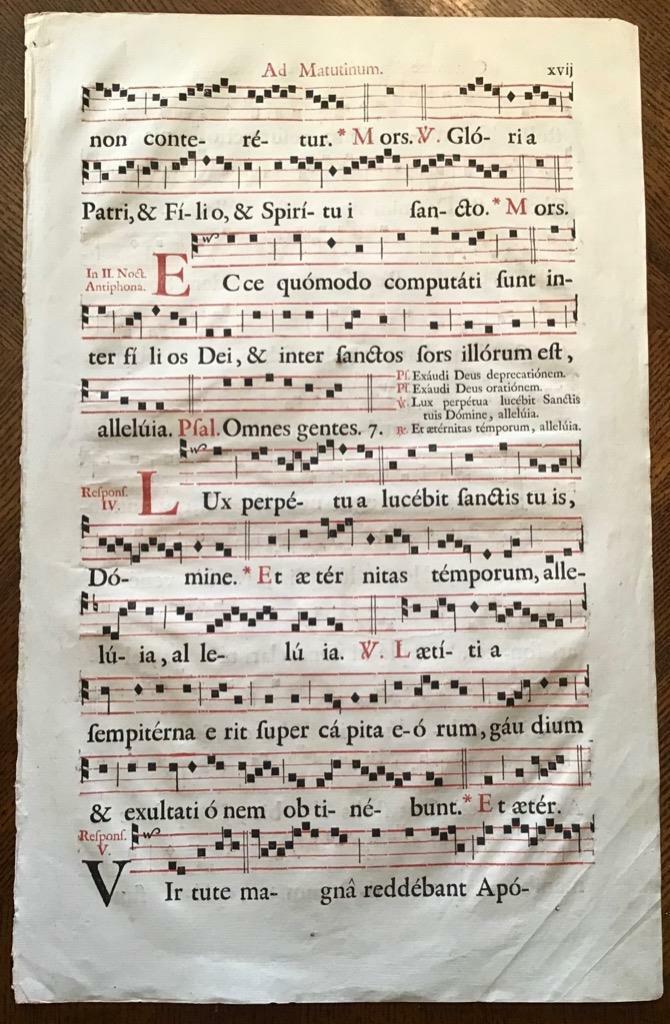 Ad Matutinum. xvij
non conte- ré- tur. * Mors. ℣. Glória
Patri, & Fí- lio, & Spirí- tui ſan- cto. * Mors.
In II. Noct.
Antiphona.
ECce quómodo computáti ſunt in-
ter fílios Dei, & inter ſanctos ſors illórum eſt,
allelúia. Pſal. Omnes gentes. 7.
Pſ. Exáudi Deus deprecatiónem.
Pſ. Exáudi Deus oratiónem.
℣. Lux perpétua lucébit Sanctis
tuis Dómine, allelúia.
℟. Et ætérnitas témporum, allelúia.
Reſponſ.
IV.
LUx perpé- tua lucébit ſanctis tuis,
Dó- mine. * Et ætérnitas témporum, alle-
lú- ia, alle- lúia. ℣. Lætí- tia
ſempitérna erit ſuper cápita e-órum, gáudium
& exultatiónem obti- né- bunt. * Et ætér.
Reſponſ.
V.
VIrtute ma- gnâ reddébant Apó-